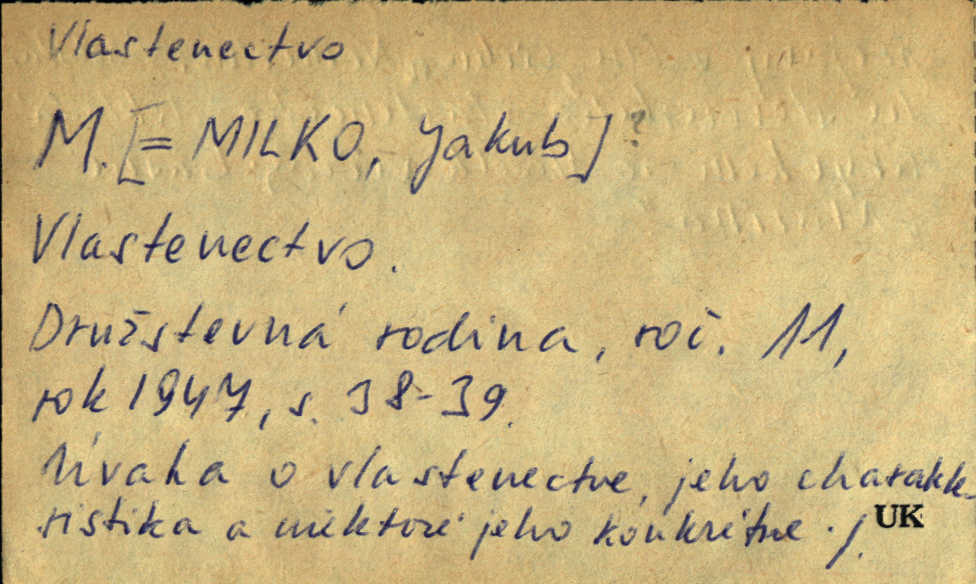 Vlastenectvo
M. [= MILKO, Jakub] ?
Vlastenectvo.
Družstevná rodina, roč. 11,
rok 1947, s. 38-39.
Úvaha o vlastenectve, jeho charakte-
ristika a niektoré jeho konkrétne ./.
UK